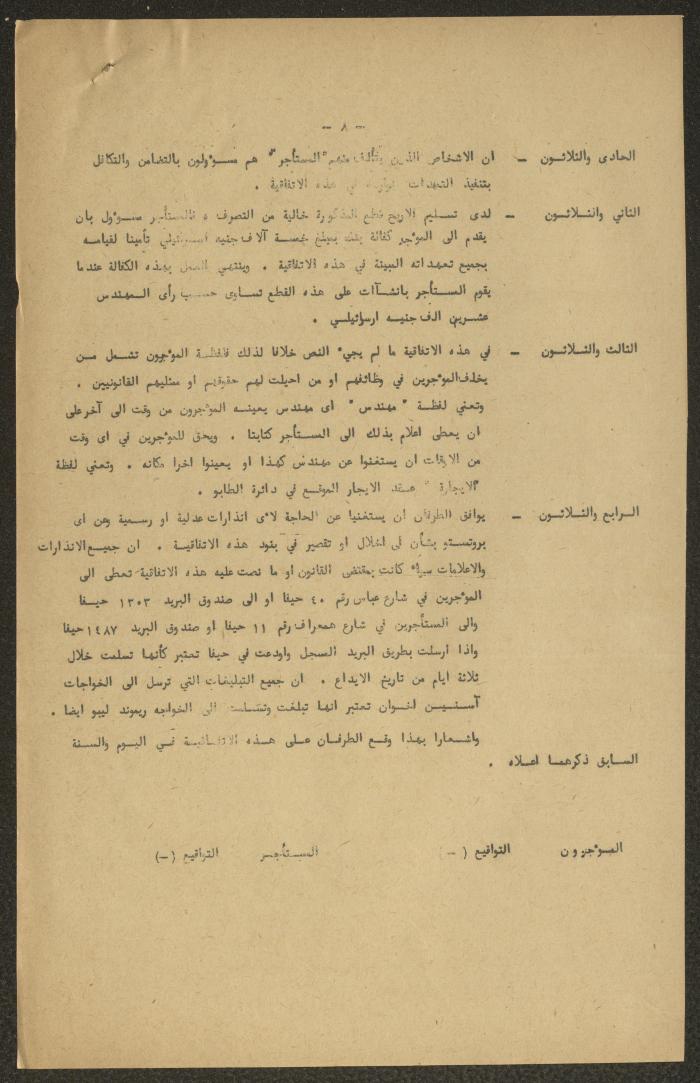 - ٨ -
الحادى والثلاثون - ان الاشخاص الذين يتألف منهم "المستأجر" هم مسؤولون بالتضامن والتكافل
بتنفيذ التعهدات في هذه الاتفاقية .
الثاني والثلاثون - لدى تسليم الاربع قطع المذكورة خالية من التصرف فالمستأجر مسؤول بان
يقدم الى الموجر كفالة بنك بمبلغ خمسة آلاف جنيه اسرائيلي تأمينا لقيامه
بجميع تعهداته المبينة في هذه الاتفاقية . وينتهي العمل بهذه الكفالة عندما
يقوم المستأجر بانشآات على هذه القطع تساوى حسب رأى المهندس
عشرين الف جنيه اسرائيلي .
الثالث والثلاثون - في هذه الاتفاقية ما لم يجيء النص خلافا لذلك فلفظة الموجرون تشمل من
يخلف الموجرين في وظائفهم او من احيلت لهم حقوقهم او ممثليهم القانونيين .
وتعني لفظة " مهندس " اى مهندس يعينه الموجرون من وقت الى آخر على
ان يعطى اعلام بذلك الى المستأجر كتابتا . ويحق للموجرين في اى وقت
من الاوقات ان يستغنوا عن مهندس كهذا او يعينوا اخرا مكانه . وتعني لفظة
"الايجارة " عقد الايجار الموقع في دائرة الطابو .
الرابع والثلاثون - يوافق الطرفان ان يستغنيا عن الحاجة لاى انذارات عدلية او رسمية وعن اى
بروتستو بشأن اى اخلال او تقصير في بنود هذه الاتفاقية . ان جميع الانذارات
والاعلامات سواء كانت بمقتضى القانون او ما نصت عليه هذه الاتفاقية تعطى الى
الموجرين في شارع عباس رقم ٤٠ حيفا او الى صندوق البريد ١٣٠٣ حيفا
والى المستأجرين في شارع همعراف رقم ١١ حيفا او صندوق البريد ١٤٨٧ حيفا
واذا ارسلت بطريق البريد المسجل واودعت في حيفا تعتبر كأنها تسلمت خلال
ثلاثة ايام من تاريخ الايداع . ان جميع التبليغات التي ترسل الى الخواجات
آسنيين اخوان تعتبر انها تبلغت وتسلمت الى الخواجه ريموند ليبو ايضا .
واشعارا بهذا وقع الطرفان على هذه الاتفاقية في اليوم والسنة
السابق ذكرهما اعلاه .
الموجرون التواقيع (-) المستأجر التواقيع (-)